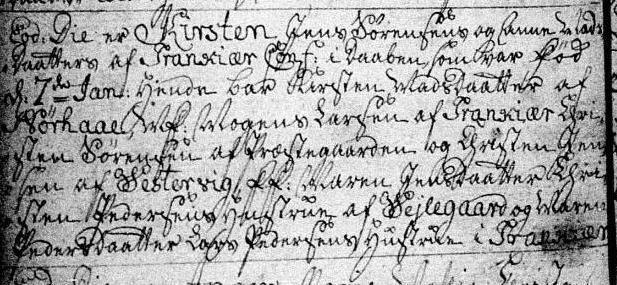 Eod: Die er Kirsten Jens Sörensens og Anne Mads
Daatters af Trankiær Conf: i Daaben, som var Föd
d: 7de Jan: Hende bar Kirsten MadsDaatter af
Nörhaae, Wf: Mogens Larsen af Trankiær Chri-
sten Sörensen af Præstegaarden og Christen Jen-
sen af Vestervig, Ff: Maren JensDaatter Chri-
sten Pedersens Hustrue af Vejlegaard og Maren
PedersDaatter Lars Pedersens Hustrue i Trankiær